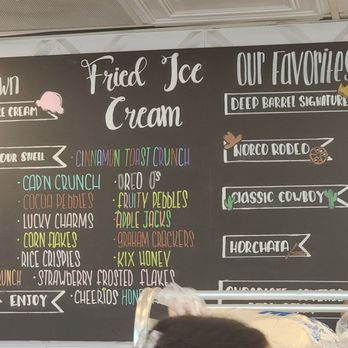 Fried Ice
Cream
CE CREAM
OUR SHELL
CINNAMON TOAST CRUNCH
CAP'N CRUNCH
COCOA PEBBLES
LUCKY CHARMS
CORN FLAKES
RICE CRISPIES
OREO O'S
FRUITY PEBBLES
APPLE JACKS
GRAHAM CRACKERS
KIX HONEY
STRAWBERRY FROSTED FLAKES
CHEERIOS HONE
ENJOY
OUR FAVORITES
DEEP BARREL SIGNATURE
NORCO RODEO
CLASSIC COWBOY
HORCHATA